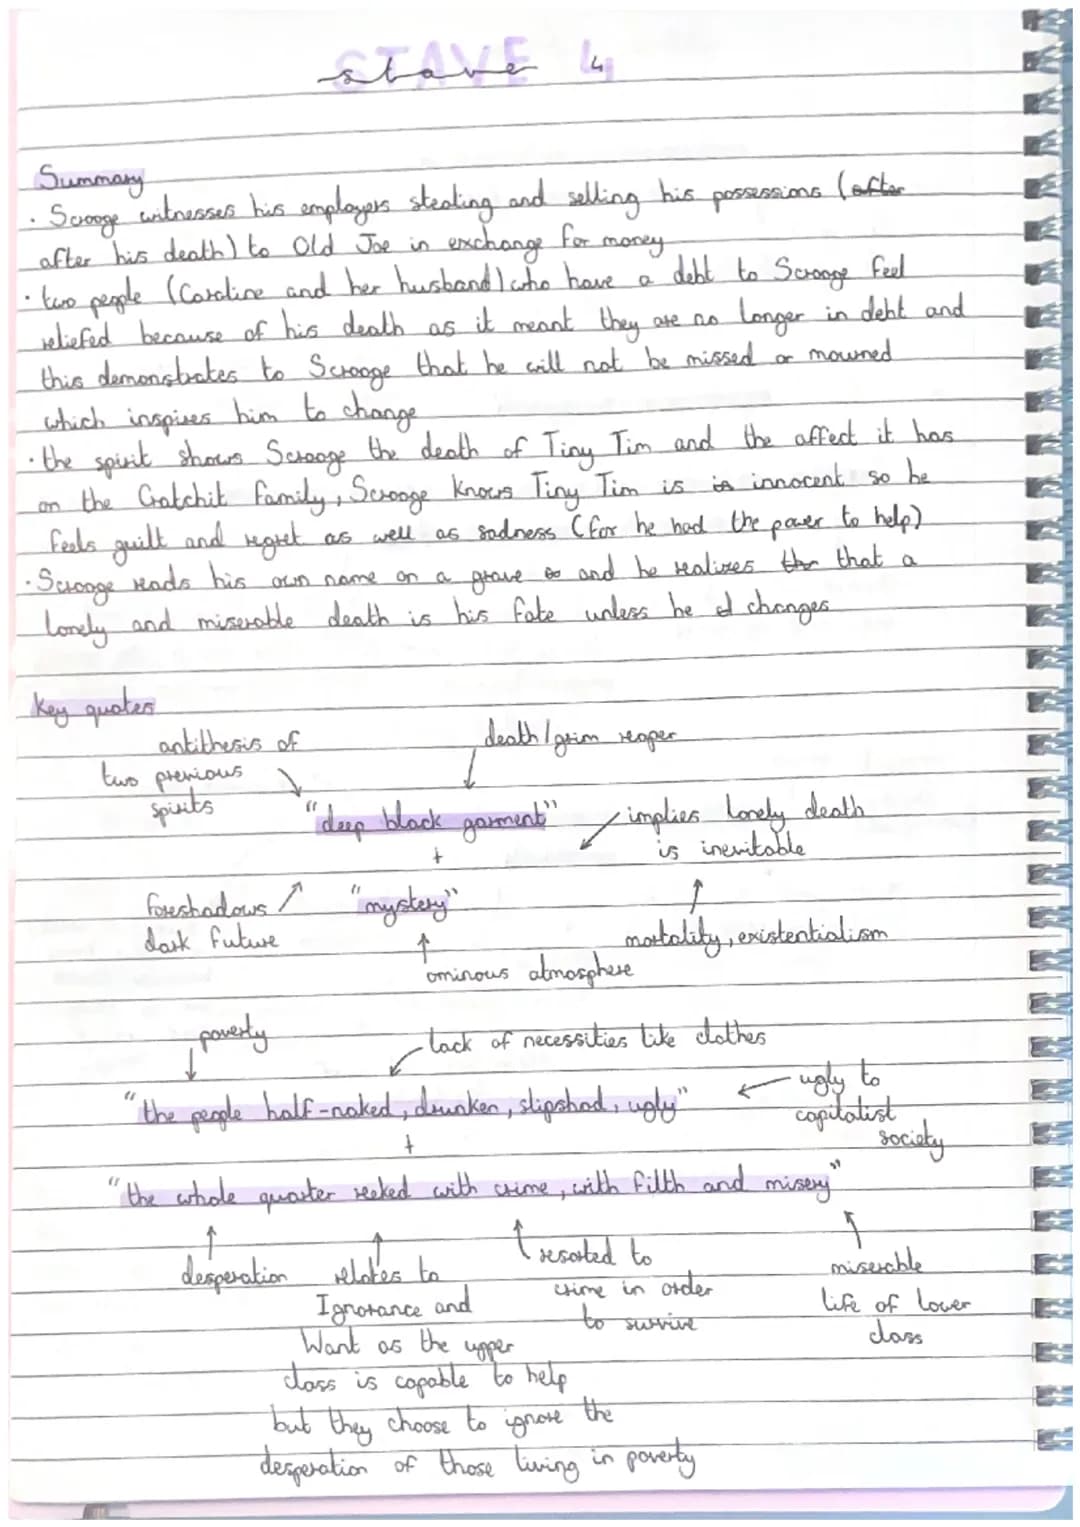 STAVE 4
stave 4
Summary
· Scrooge witnesses his employers stealing and selling his possessions (after
after his death) to Old Joe in exchange for money
· two people (Caroline and her husband) who have a debt to Scrooge feel
reliefed because of his death as it meant they are no longer in debt and
this demonstrates to Scrooge that he will not be missed or mowned
which inspires him to change
· the spirit shows Scrooge the death of Tiny Tim and the affect it has
on the Cratchit family, Scrooge knows Tiny Tim is is innocent so he
feels guilt and regret as well as sadness (for he had the power to help)
· Scrooge reads his own name on a grave and he realizes that a
lonely and miserable death is his fate unless he changes
key quotes
antithesis of
two previous
spirits
death/grim reaper
"deep black garment"
implies lonely death
is inevitable
+
foreshadows
dark future
"mystery"
mortality, existentialism
ominous atmosphere
poverty
lack of necessities like clothes
"the people half-naked, drunken, slipshod, ugly"
ugly to
capitalist
society
+
"the whole quarter reeked with crime, with filth and misery"
desperation
relates to
Ignorance and
Want as the upper
class is capable to help
but they choose to ignore the
desperation of those living in poverty
resorted to
crime in order
to survive
miserable
life of lower
class